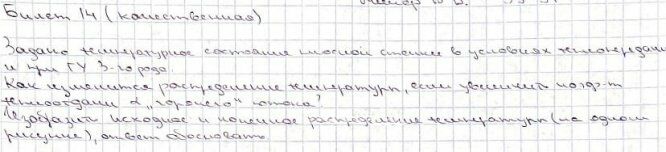 Билет 14 (качественная)
Задано температурное состояние плоской стенки в условиях теплопередачи
и при ГУ 3-го рода.
Как изменится распределение температуры, если увеличить коэф-т
теплоотдачи α „горячего“ потока?
Изобразить исходное и конечное распределение температуры (на одном
рисунке), ответ обосновать.